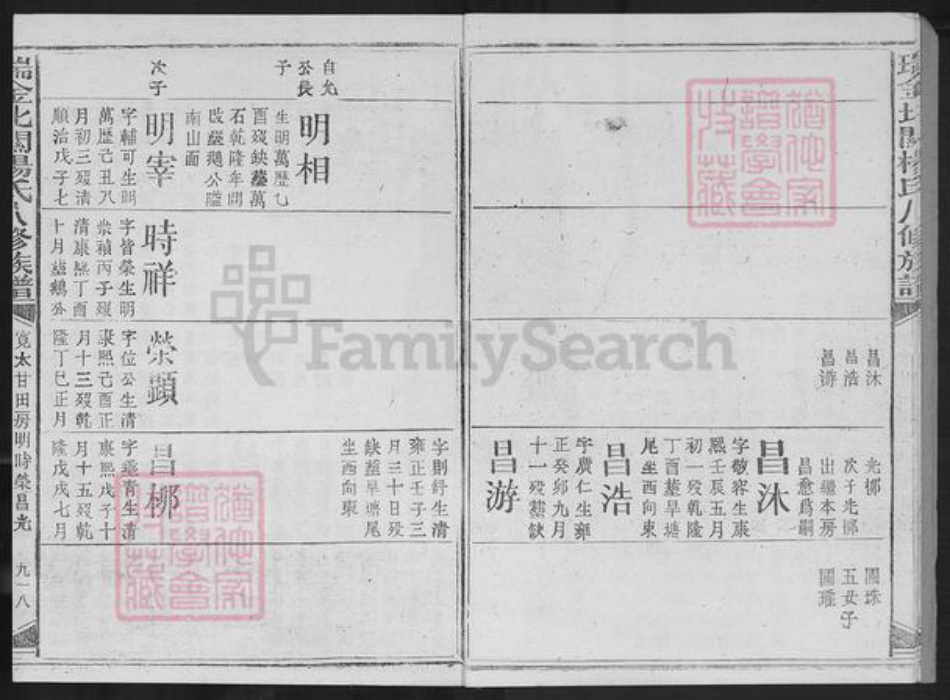 瑞金北關楊氏八修族譜
昌沐
昌浩
昌游
光梛
次子光梛
出繼本房
昌愈爲嗣
圖珠
五女子
圖璀
昌沐
字敬容生康
熙壬辰五月
初一殁乾隆
丁酉塟旱塘
尾坐西向東
昌浩
字廣仁生雍
正癸卯九月
十一殁墓缺
昌游
字則舒生清
雍正壬子三
月三十日殁
缺塟旱塘尾
坐西向東
自允
公長
子
明相
生明萬歷乙
酉殁缺塟萬
石乾隆年間
改塟鵝公隘
南山面
次子
明宰
字輔可生明
萬歷己丑八
月初三殁清
順治戊子七
時祥
字皆榮生明
崇禎丙子殁
清康熙丁酉
十月塟鵝公
榮顯
字位公生清
康熙己酉正
月十三殁乾
隆丁巳正月
昌梛
字臺青生清
康熙戊子十
月十五殁乾
隆戊戌七月
瑞金北關楊氏八修族譜
寬太甘田房明時榮昌光
九一八
FamilySearch